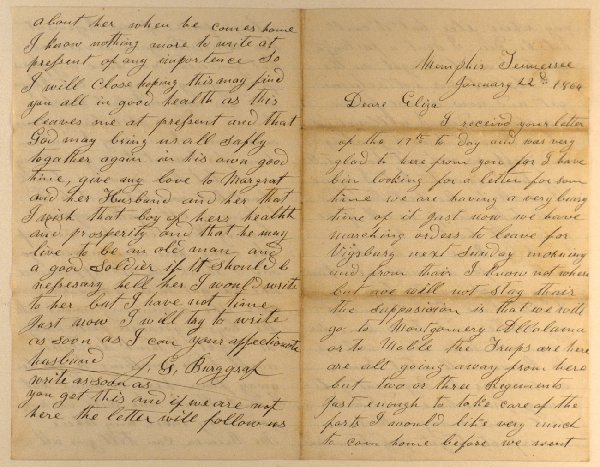 about her when he comes home
I know nothing more to write at
pressent of any importence So
I will close hoping this may find
you all in good health as this
leaves me at pressent and that
God may bring us all safly
together again in his own good
time, give my love to Margrat
and her Husband and her that
I wish that boy of hers health
and prosperity and that he may
live to be an old man and
a good Soldier if it should b
nessesary tell her I would write
to her but I have not time
Just now I will try to write
as soon as I can your affectionate
husband J. G. Burggraf
write as soon as
you get this and if we are not
here the letter will follow us
Memphis Tennessee
January 22d 1864
Deare Eliza
I received your letter
of the 17th to day and was very
glad to here from you for I have
bin looking for a letter for som
time we are having a very busy
time of it Just now we have
marching orders to leave for
Viqsburg next Sunday morning
and from thair I know not where
but we will not stay thair
the supposision is that we will
go to Montgomery Allabama
or to Moble the Trups are here
are all going away from here
but two or three Regiments
Just enough to take care of the
forts I would like very much
to com home before we went